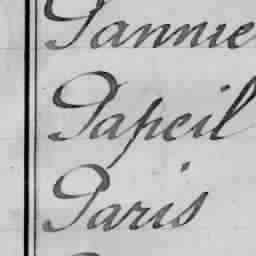 Pannie
Papeil
Paris